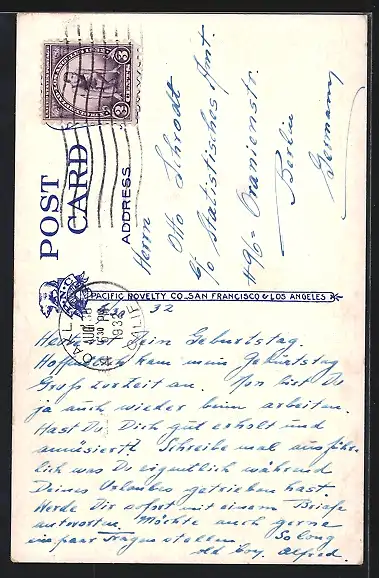 POST CARD
ADDRESS
Herrn
Otto Schrodt
c/o Statistisches Amt.
#96- Oranienstr.
Berlin
Germany
PACIFIC NOVELTY CO. SAN FRANCISCO & LOS ANGELES
OAKLAND CALIF
530 PM
1932
32
Heute Dein Geburtstag.
Hoffentlich kam mein Geburtstag
Gruß zurzeit an. Nun bist Du
ja auch wieder beim arbeiten.
Hast Du Dich gut erholt und
amüsiert? Schreibe mal ausführ-
lich was Du eigentlich während
Deines Urlaubes getrieben hast.
Werde Dir sofort mit einem Briefe
antworten. Möchte auch gerne
ein paar Fragen stellen. So long
old boy. Alfred.